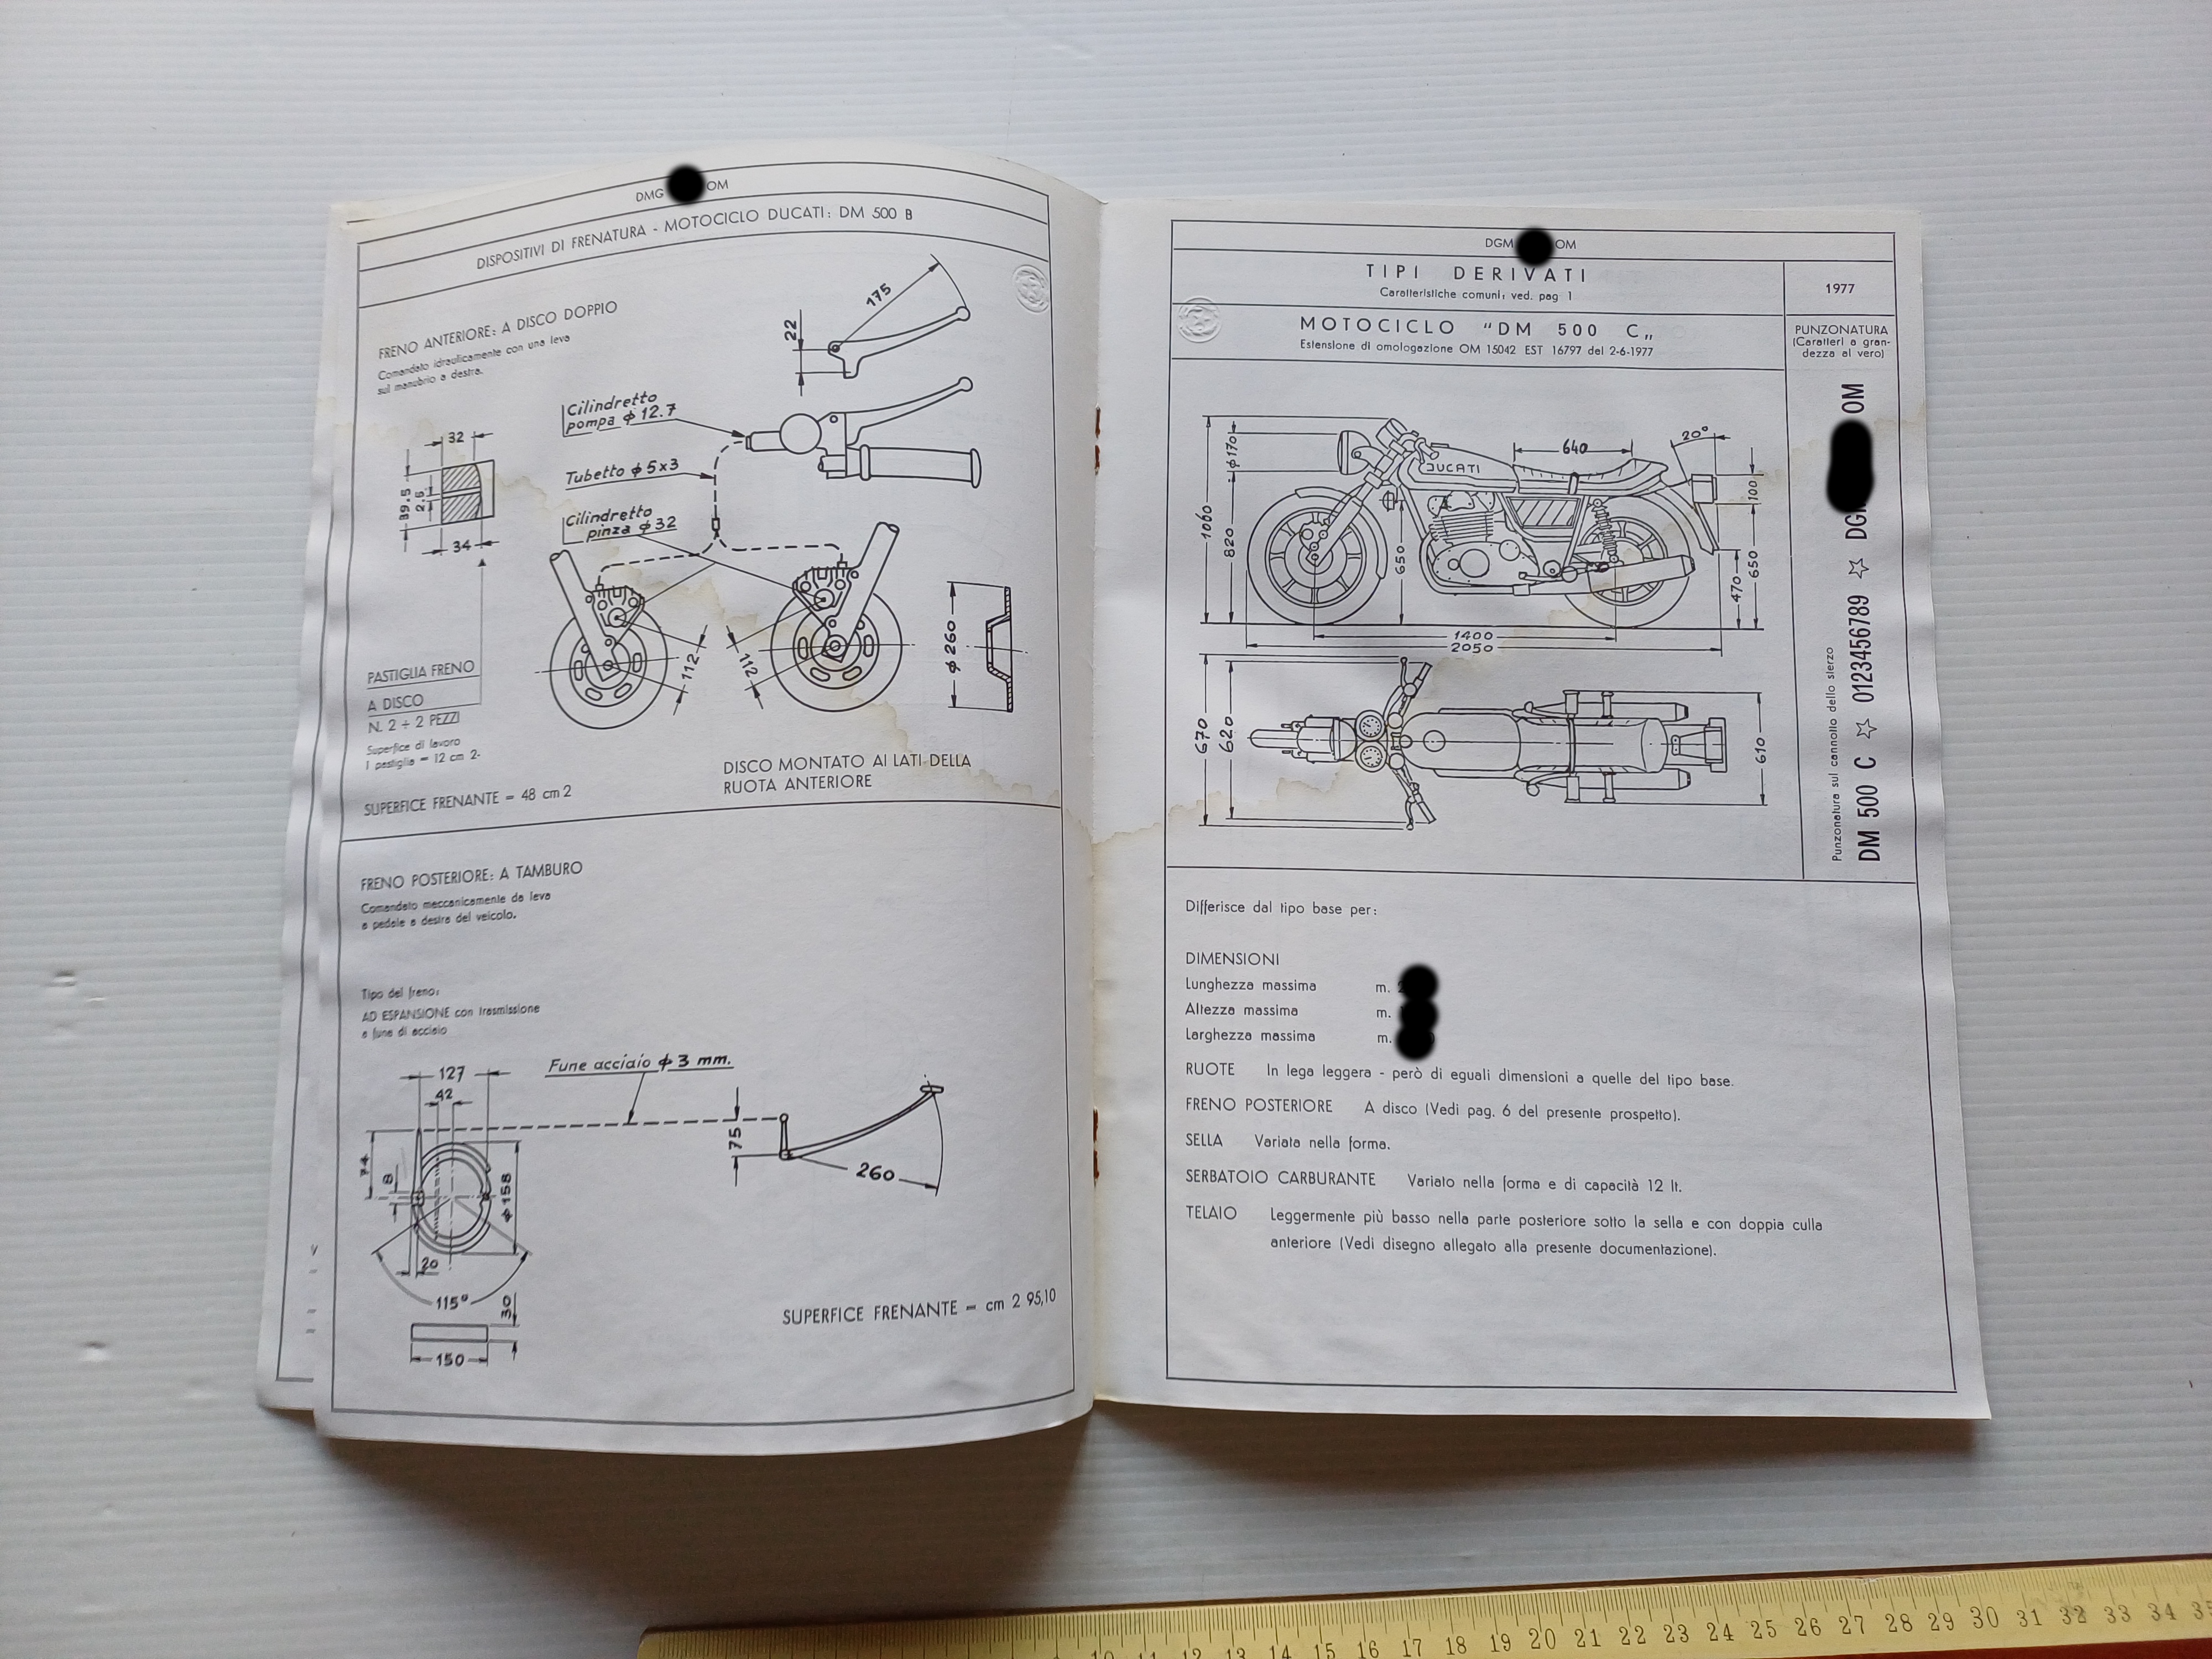 DMG OM
DISPOSITIVI DI FRENATURA - MOTOCICLO DUCATI: DM 500 B
FRENO ANTERIORE: A DISCO DOPPIO
Comandato idraulicamente con una leva
sul manubrio a destra.
175
22
Cilindretto
pompa ϕ 12.7
Tubetto ϕ 5x3
Cilindretto
pinza ϕ 32
32
39.5
2.5
34
112
112
ϕ 260
PASTIGLIA FRENO
A DISCO
N. 2 ÷ 2 PEZZI
Superfice di lavoro
1 pastiglia = 12 cm 2.
SUPERFICE FRENANTE = 48 cm 2
DISCO MONTATO AI LATI DELLA
RUOTA ANTERIORE
FRENO POSTERIORE: A TAMBURO
Comandato meccanicamente da leva
a pedale a destra del veicolo.
Tipo del freno:
AD ESPANSIONE con trasmissione
a fune di acciaio
127
42
Fune acciaio ϕ 3 mm.
75
260
74
8
ϕ 158
20
115°
30
150
SUPERFICE FRENANTE = cm 2 95,10
DGM OM
TIPI DERIVATI
Caratteristiche comuni: ved. pag 1
1977
MOTOCICLO "DM 500 C„
Estensione di omologazione OM 15042 EST 16797 del 2-6-1977
PUNZONATURA
(Caratteri a gran-
dezza al vero)
Punzonatura sul cannotto dello sterzo
DM 500 C ☆ 0123456789 ☆ DG OM
640
20°
DUCATI
1060
ϕ170
820
650
100
470
650
1400
2050
670
620
610
Differisce dal tipo base per:
DIMENSIONI
Lunghezza massima m.
Altezza massima m.
Larghezza massima m.
RUOTE In lega leggera - però di eguali dimensioni a quelle del tipo base.
FRENO POSTERIORE A disco (Vedi pag. 6 del presente prospetto).
SELLA Variata nella forma.
SERBATOIO CARBURANTE Variato nella forma e di capacità 12 lt.
TELAIO Leggermente più basso nella parte posteriore sotto la sella e con doppia culla
anteriore (Vedi disegno allegato alla presente documentazione).
10 11 12 13 14 15 16 17 18 19 20 21 22 23 24 25 26 27 28 29 30 31 32 33 34 35